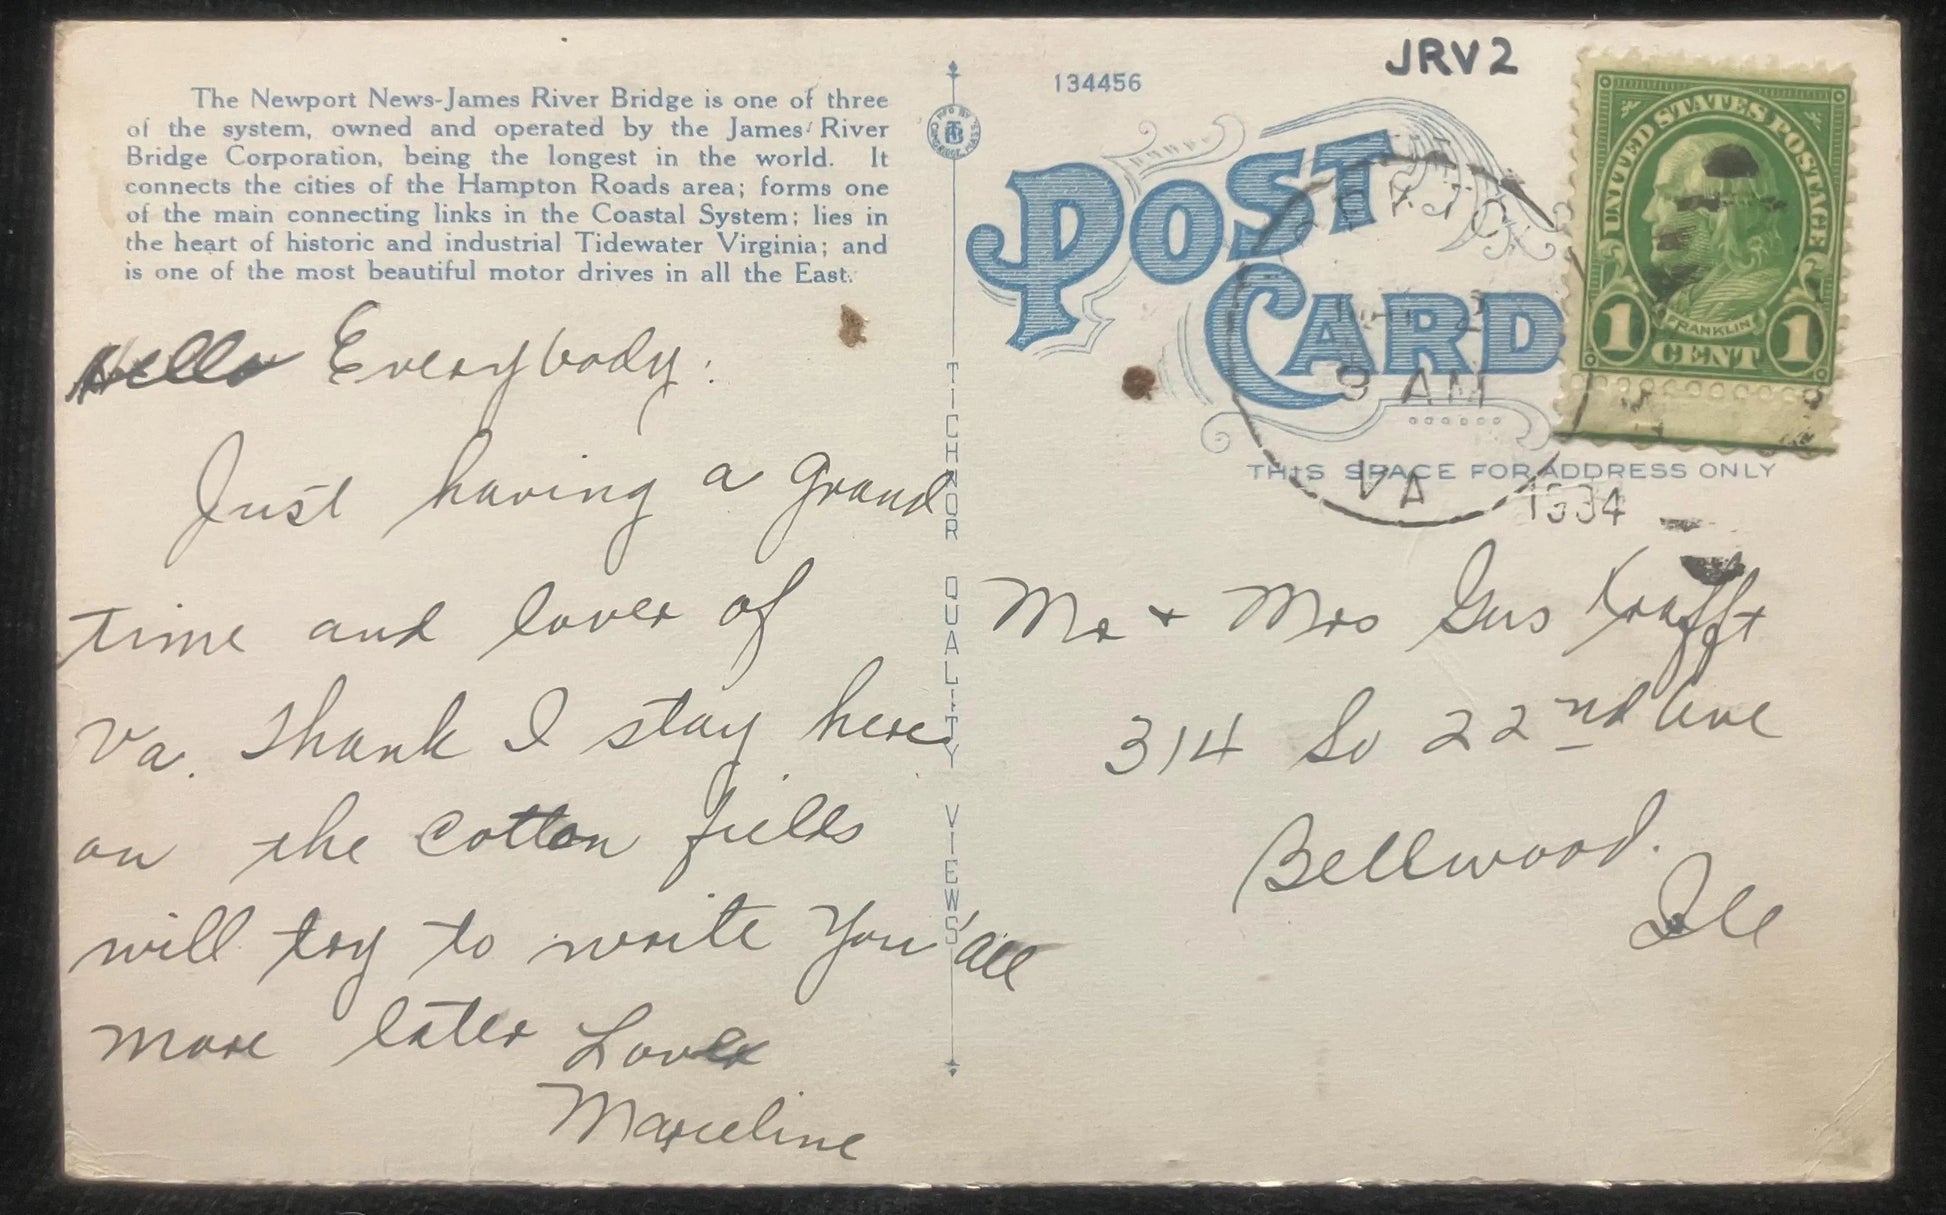 The Newport News-James River Bridge is one of three
of the system, owned and operated by the James River
Bridge Corporation, being the longest in the world. It
connects the cities of the Hampton Roads area; forms one
of the main connecting links in the Coastal System; lies in
the heart of historic and industrial Tidewater Virginia; and
is one of the most beautiful motor drives in all the East.
Hello Everybody:
Just having a grand
time and lover of
Va. Thank I stay here
on the cotton fields
will try to write you'all
more later Love
Marceline
MFD BY
TB
CAMBRIDGE, MASS
TICHNOR QUALITY VIEWS
134456
JRV2
POST
CARD
UNITED STATES POSTAGE
FRANKLIN
1 CENT 1
2
9 AM
VA
1934
THIS SPACE FOR ADDRESS ONLY
Mr + Mrs Gus Krafft
314 So 22nd Ave
Bellwood.
Ill